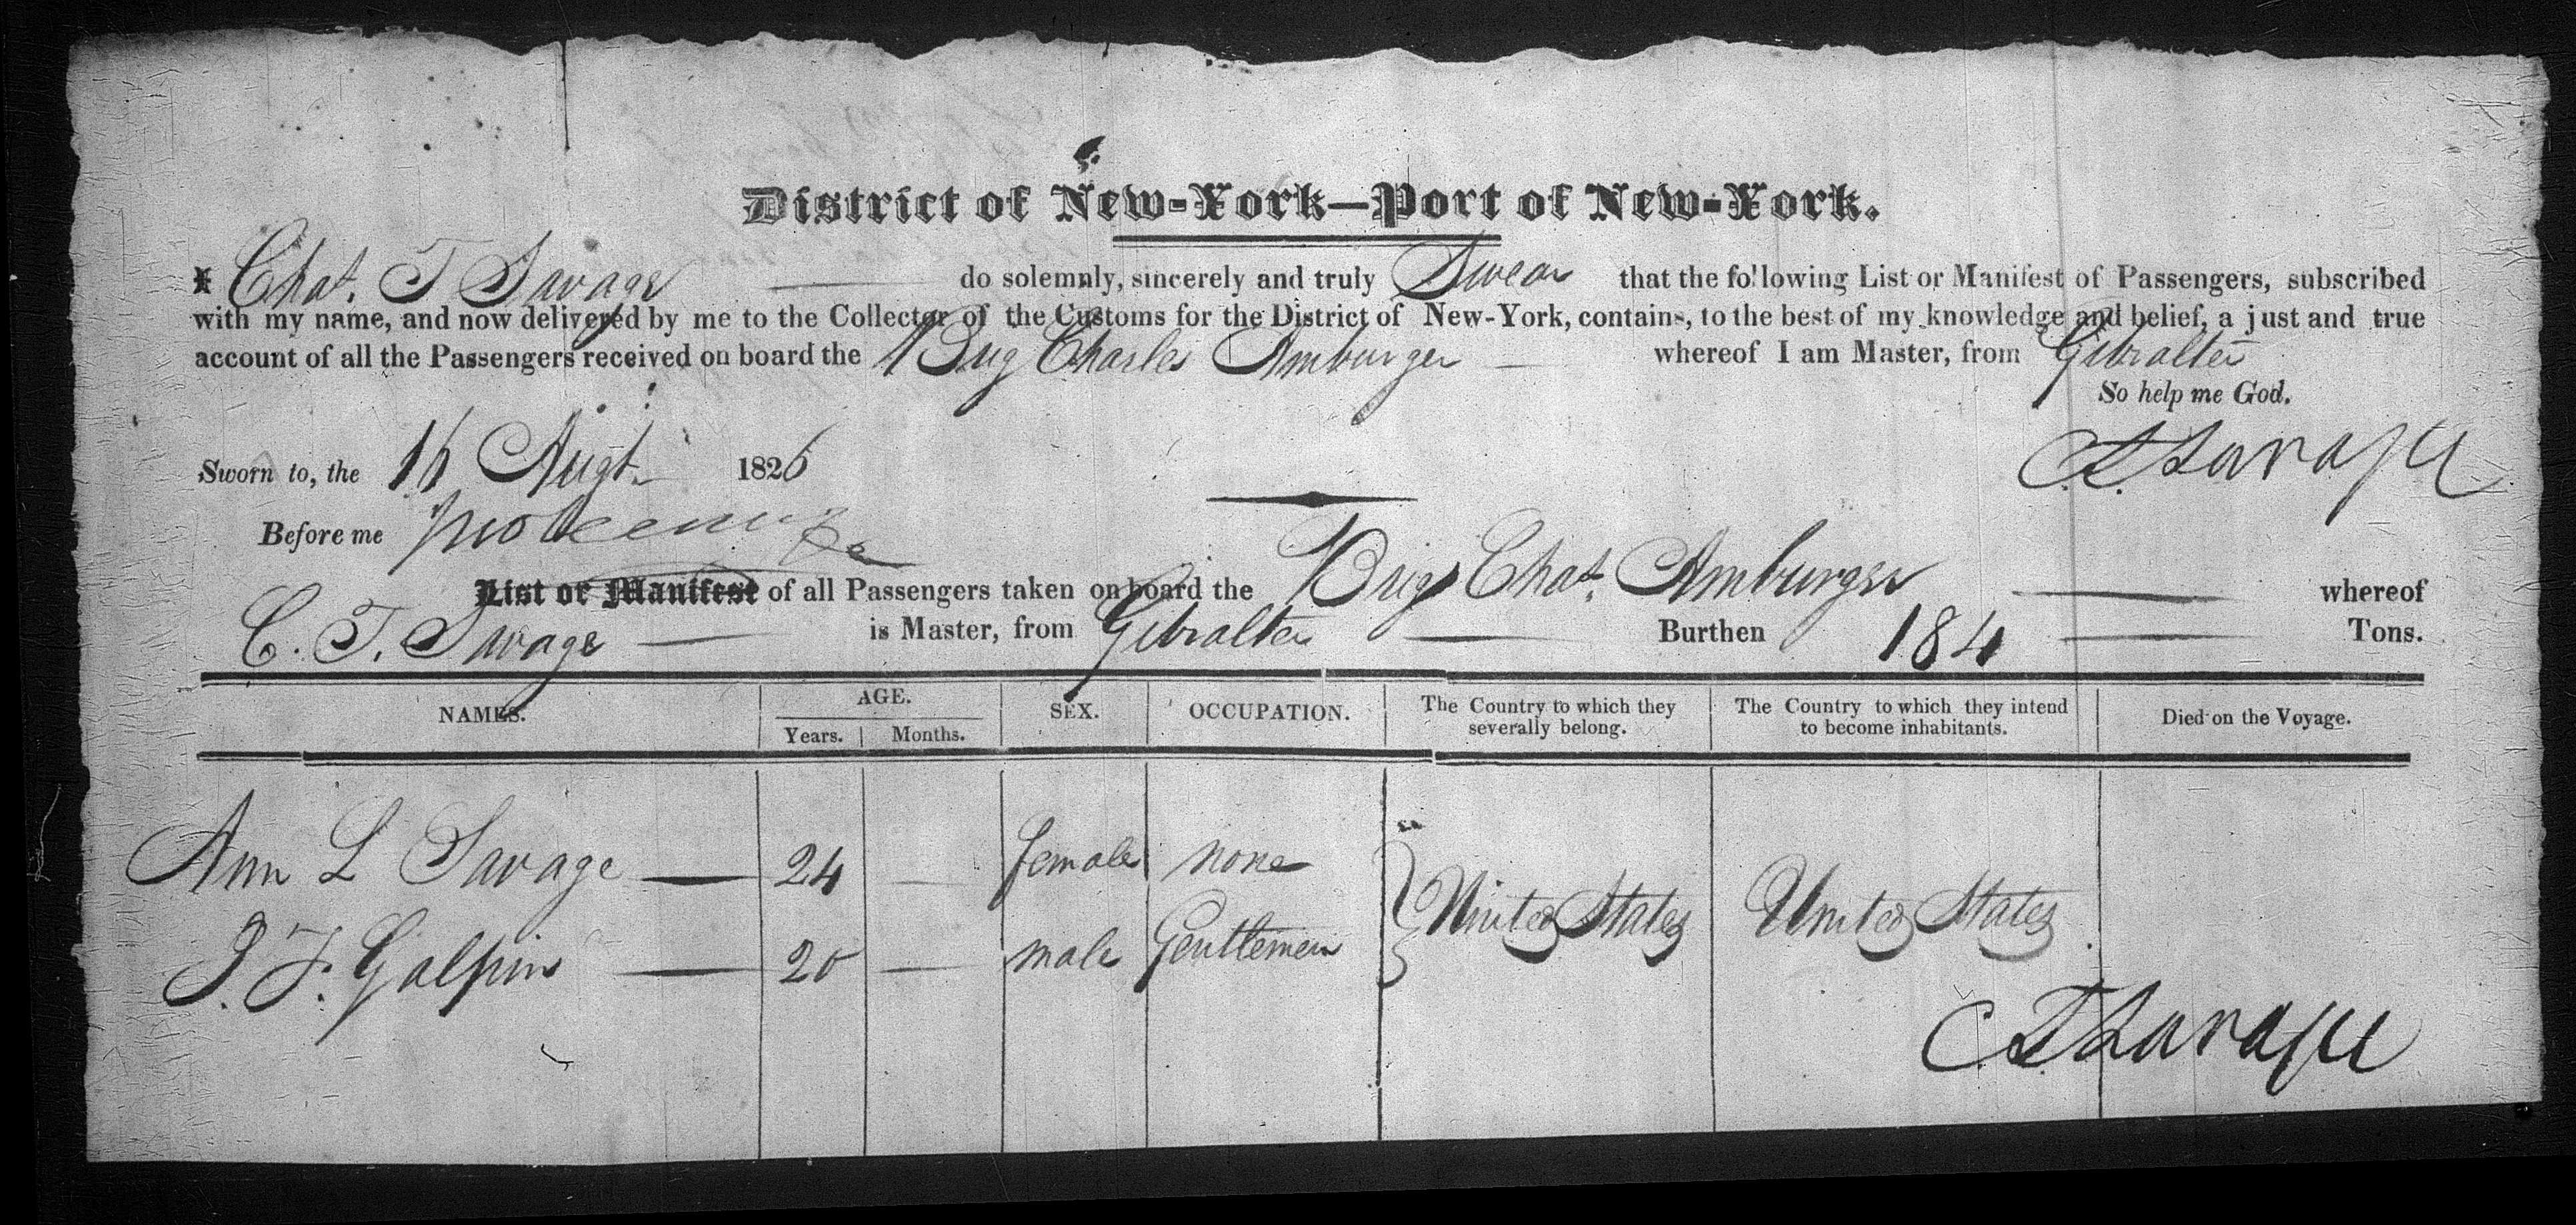 District of New-York—Port of New-York.
I Chas. T Savage do solemnly, sincerely and truly Swear that the following List or Manifest of Passengers, subscribed
with my name, and now delivered by me to the Collector of the Customs for the District of New-York, contains, to the best of my knowledge and belief, a just and true
account of all the Passengers received on board the Brig Charles Amburger whereof I am Master, from Gibralter
So help me God.
Sworn to, the 16 Augt. 1826
C. T. Savage
Before me
List or Manifest of all Passengers taken on board the Brig Chas. Amburger whereof
C. T. Savage is Master, from Gibralter Burthen 184 Tons.
NAMES. AGE. SEX. OCCUPATION. The Country to which they severally belong. The Country to which they intend to become inhabitants. Died on the Voyage.
Years. Months.
Ann L Savage — 24 — female none
United States United States
J. F. Galpin — 20 — male Gentlemen
C. T. Savage